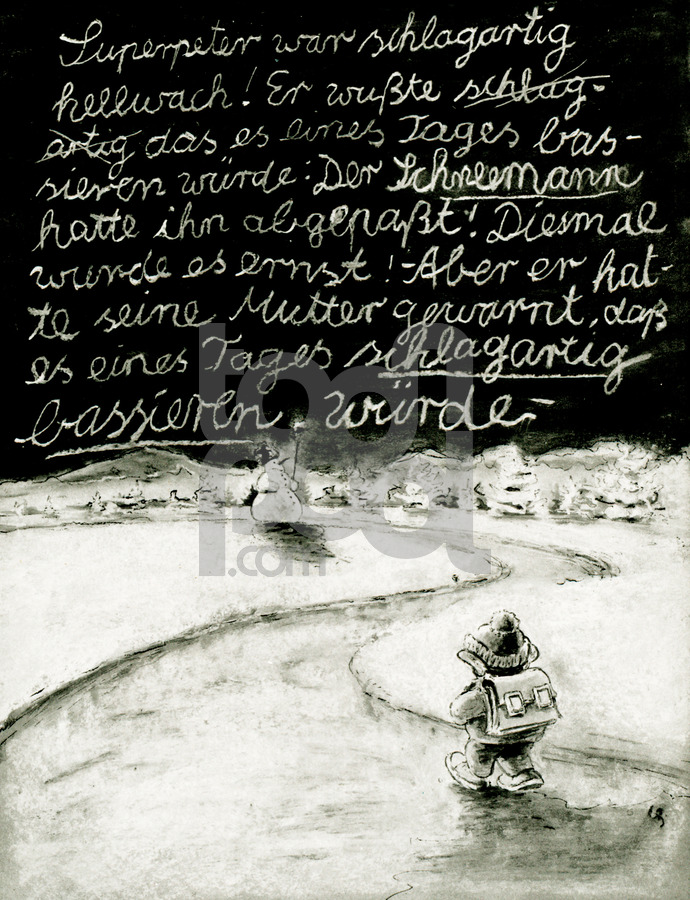 Superpeter war schlagartig
hellwach! Er wußte schlag-
artig das es eines Tages bas-
sieren würde: Der Schneemann
hatte ihn abgepaßt! Diesmal
wurde es ernst! - Aber er hat-
te seine Mutter gewarnt, daß
es eines Tages schlagartig
bassieren würde -
toonpool.com